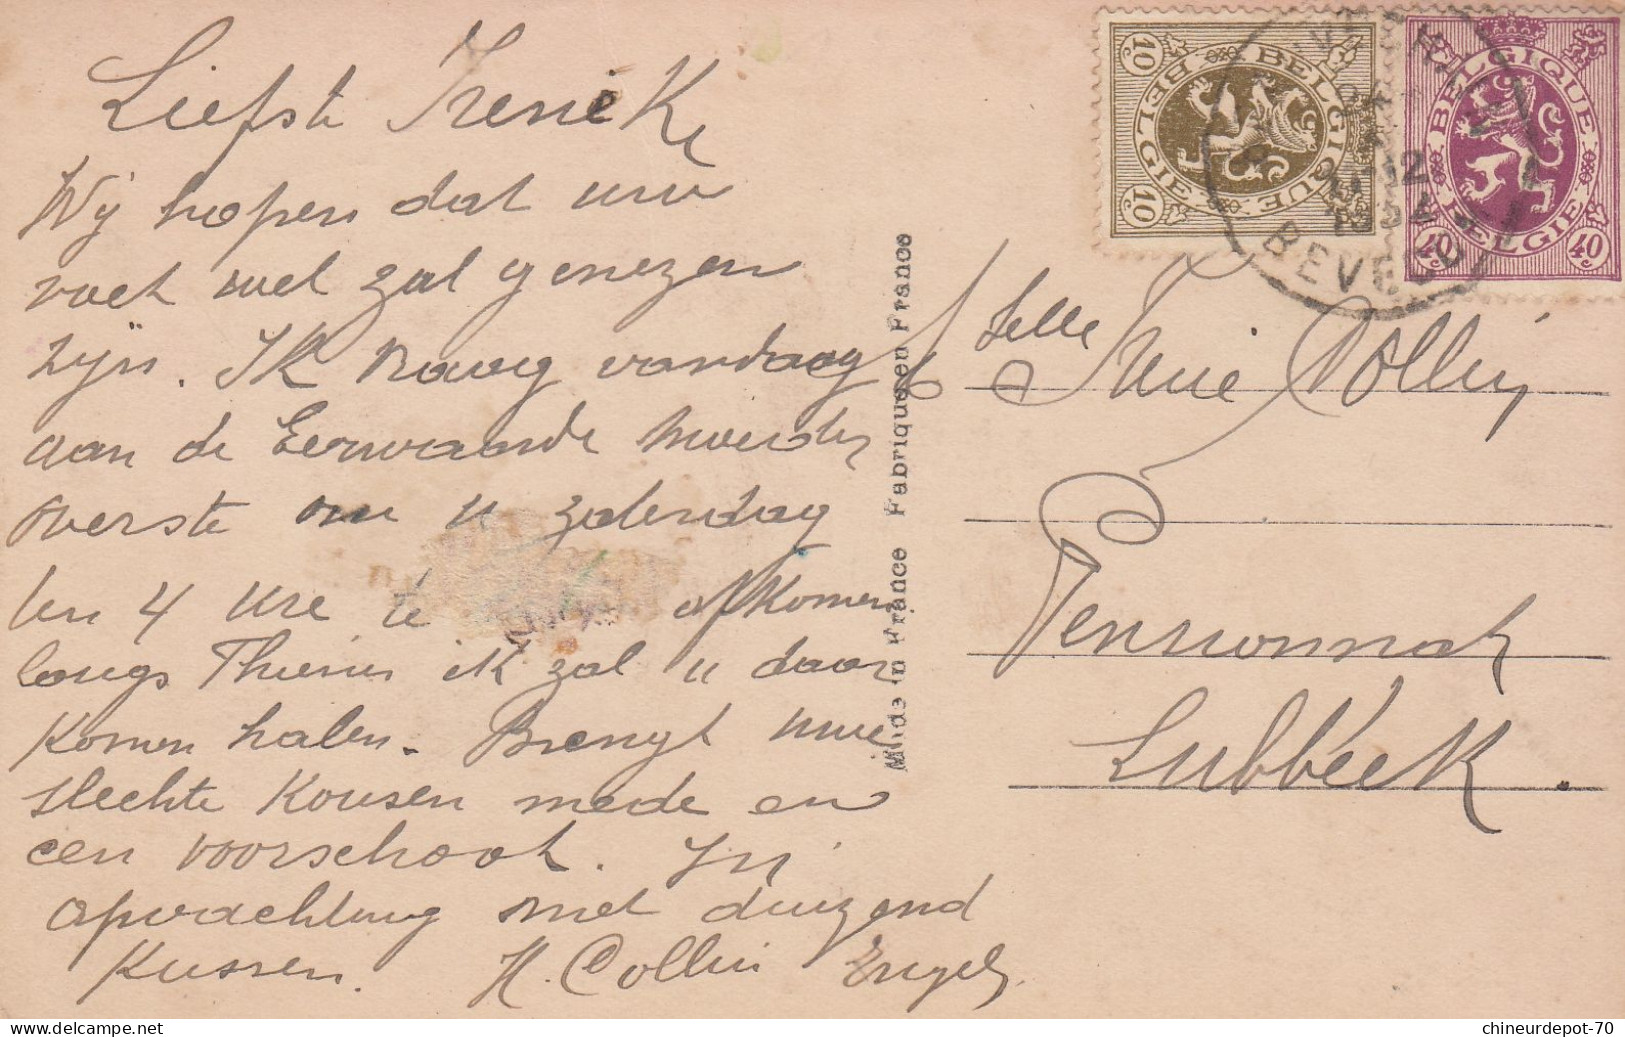 Liefste Ireneke
Wij hopen dat uw
voet wel zal genezen
zijn. Ik vraag vandaag
aan de Eerwaarde Moeder
Overste om u zaterdag
ten 4 ure te afkomen
langs Thienen ik zal u daar
komen halen. Brengt uwe
slechte kousen mede en
een voorschoot. In
afwachting met duizend
kussen. H. Collin Engels
Made in France Fabriqué en France
BELGIQUE
BELGIE
10c 10c
BELGIQUE
BELGIE
40c 40c
12
BEVE
Jelle Irene Collin
Pensionnat
Lubbeek.
chineurdepot-70